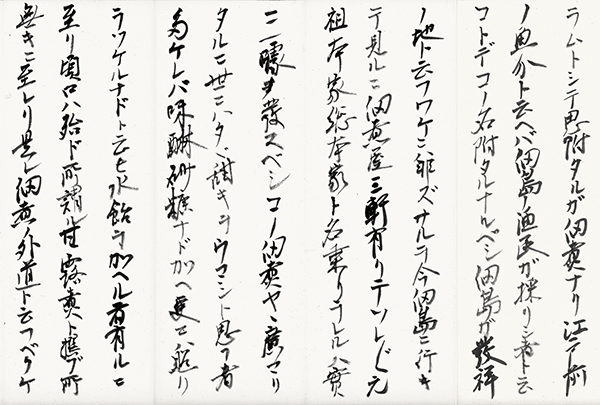 ラムトシテ思附タルガ佃煮ナリ江戸前
ノ魚介ト云ヘバ佃島ノ漁民ガ採リシ者ト云
コトデコノ名附タルナルベシ佃島ガ發祥
ノ地ト云フワケニ非ズサルヲ今佃島ニ行キ
テ見ルニ佃煮屋三軒有リテソレゾレ元
祖本家総本家ト名乗リヲレルハ實
ニ一噱ヲ發スベシコノ佃煮ヤヽ廣マリ
タルニ世ニハタヾ甜キヲウマシト思フ者
多ケレバ味醂砂糖ナドガヘ更ニハ飴リ
ヲツケルナドト云ヒ水飴ヲカヘル者有ルニ
至リ関口ハ殆ド所謂甘露煮ト擇ブ所
無キニ至レリ是レ佃煮ノ外道ト云フベクケ